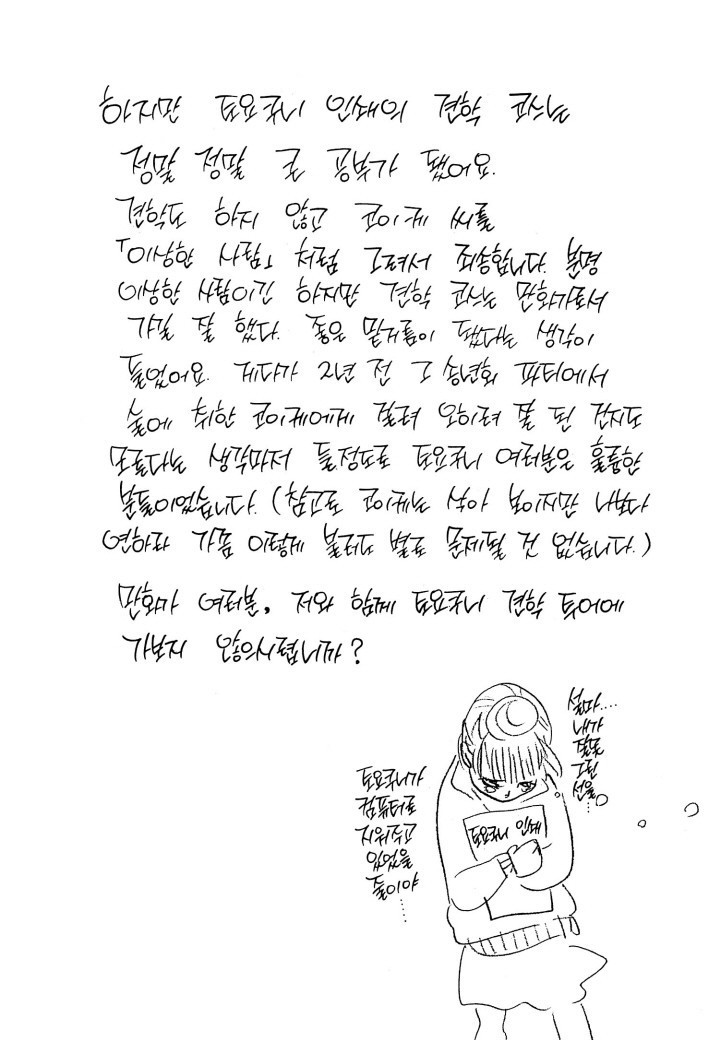 하지만 토요쿠니 인쇄의 견학 코스는
정말 정말 큰 공부가 됐어요.
견학도 하지 않고 코이케 씨를
「이상한 사람」처럼 그려서 죄송합니다. 분명
이상한 사람이긴 하지만 견학 코스는 만화가로서
가길 잘 했다. 좋은 밑거름이 됐다는 생각이
들었어요. 게다가 2년 전 그 송년회 파티에서
술에 취한 코이케에게 걸려 오히려 잘 된 건지도
모른다는 생각마저 들정도로 토요쿠니 여러분은 훌륭한
분들이었습니다. (참고로 코이케는 삭아 보이지만 나보다
연하라 가끔 이렇게 불러도 별로 문제될 것 없습니다.)
만화가 여러분, 저와 함께 토요쿠니 견학 투어에
가보지 않으시렵니까?
설마....
내가
잘못
그린
선을...
토요쿠니가
컴퓨터로
지워주고
있었을
줄이야
......
토요쿠니 인쇄